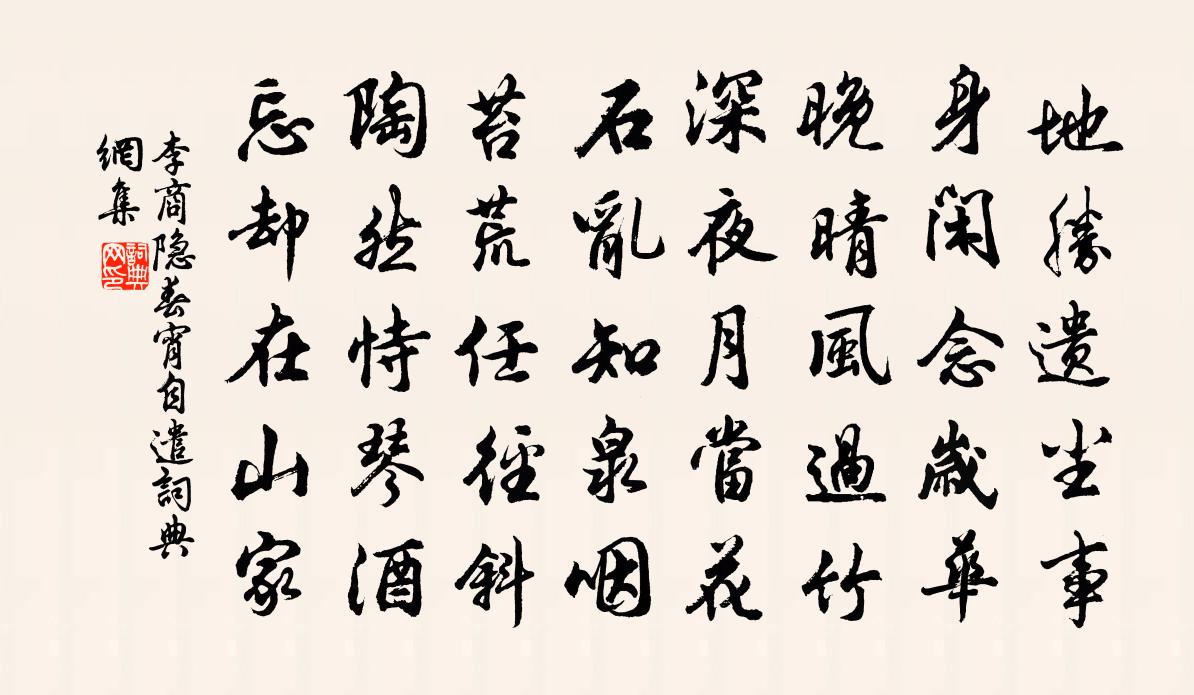 地勝遺尘事
身閑念歲華
晚晴風過竹
深夜月當花
石亂知泉咽
苔荒任徑斜
陶然恃琴酒
忘却在山家
李商隐春宵自遣詞典
網集
詞典
网印